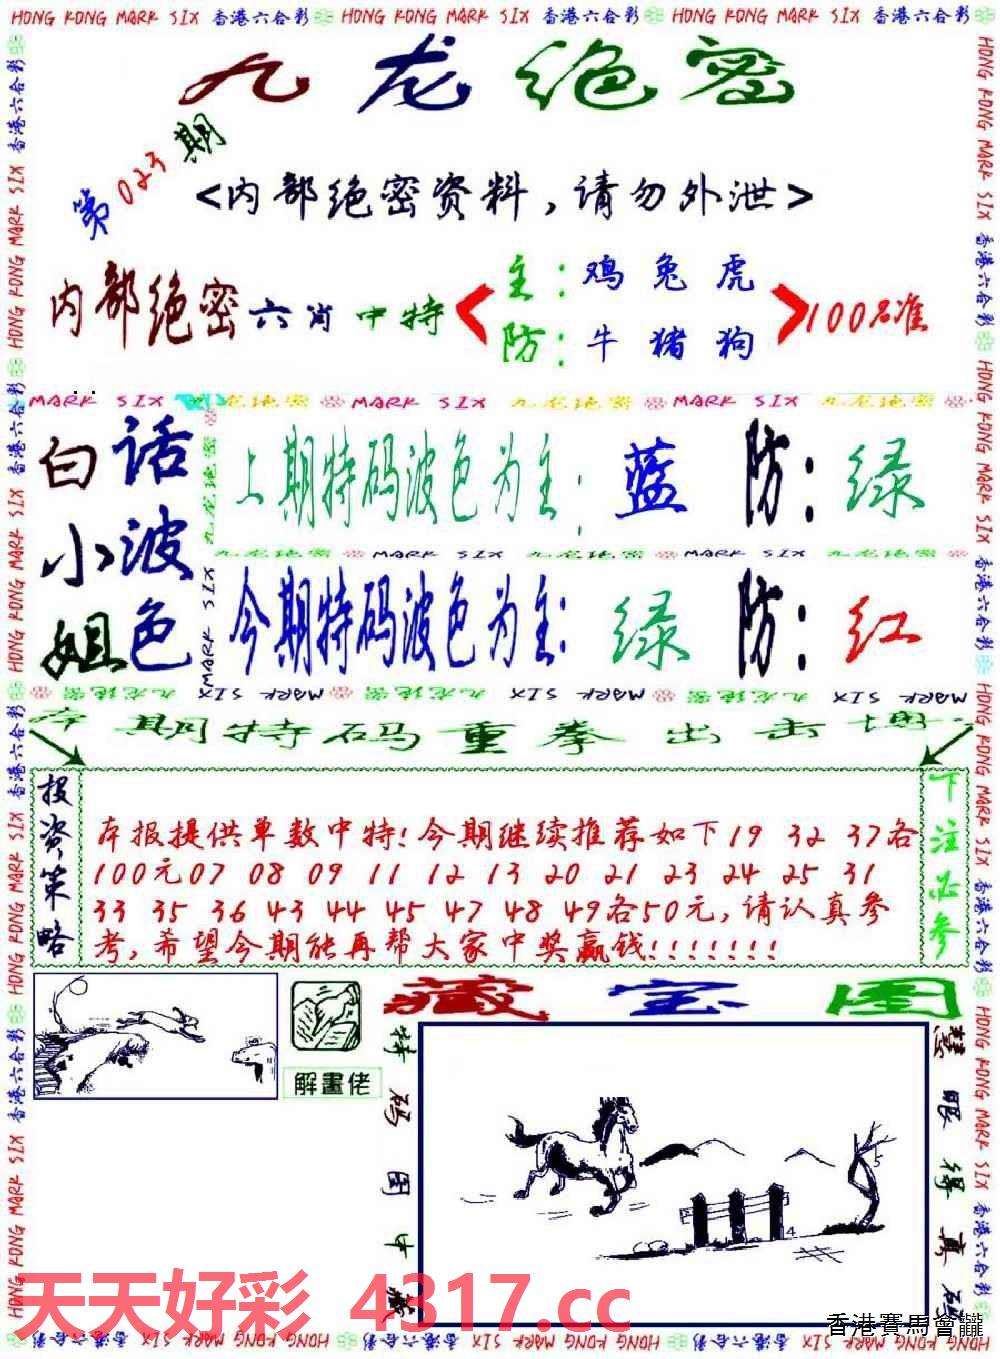 HONG KONG MARK SIX 香港六合彩 HONG KONG MARK SIX 香港六合彩 HONG KONG MARK SIX 香港六合彩
九龙绝密
第023期
<内部绝密资料,请勿外泄>
内部绝密六肖中特
主:鸡兔虎
防:牛猪狗
100%准
MARK SIX 九龙绝密 MARK SIX 九龙绝密 MARK SIX 九龙绝密
白小姐
话波色
上期特码波色为主: 蓝 防: 绿
九龙绝密 MARK SIX 九龙绝密 MARK SIX 九龙绝密
今期特码波色为主: 绿 防: 红
本期特码重拳出击
投资策略
本报提供单数中特!今期继续推荐如下19 32 37各
100元07 08 09 11 12 13 20 21 23 24 25 31
33 35 36 43 44 45 47 48 49各50元,请认真参
考,希望今期能再帮大家中奖赢钱!!!!!!!
下注必参
解畫佬
藏宝图
特码图中藏
慧眼得真码
5
4
天天好彩 4317.cc
香港賽馬會